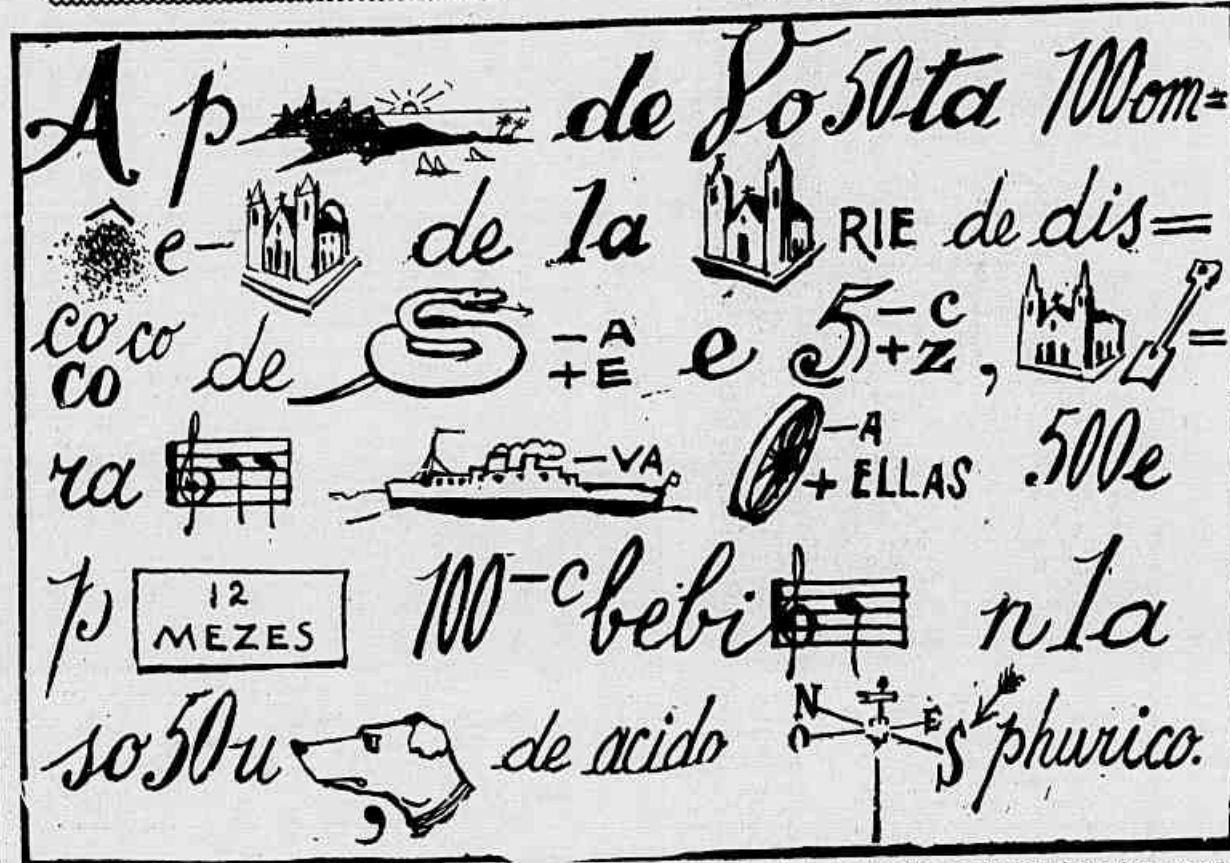 A p de Vo50ta 100om=
^ e- de 1a RIE de dis=
co co co de -A +E e 5 -c +z , =
ra -VA -A + ELLAS .500e
p 12 MEZES 100-c bebi n1a
so50u , de acido N O E S phurico.